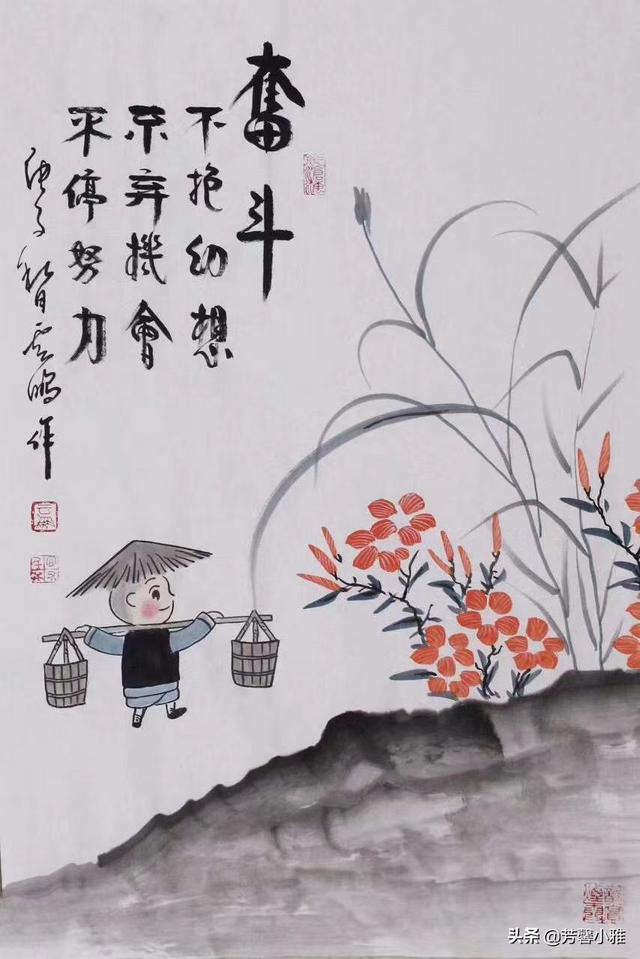 奮斗
不抱幻想
不弃機會
不停努力
头条 @芳馨小雅